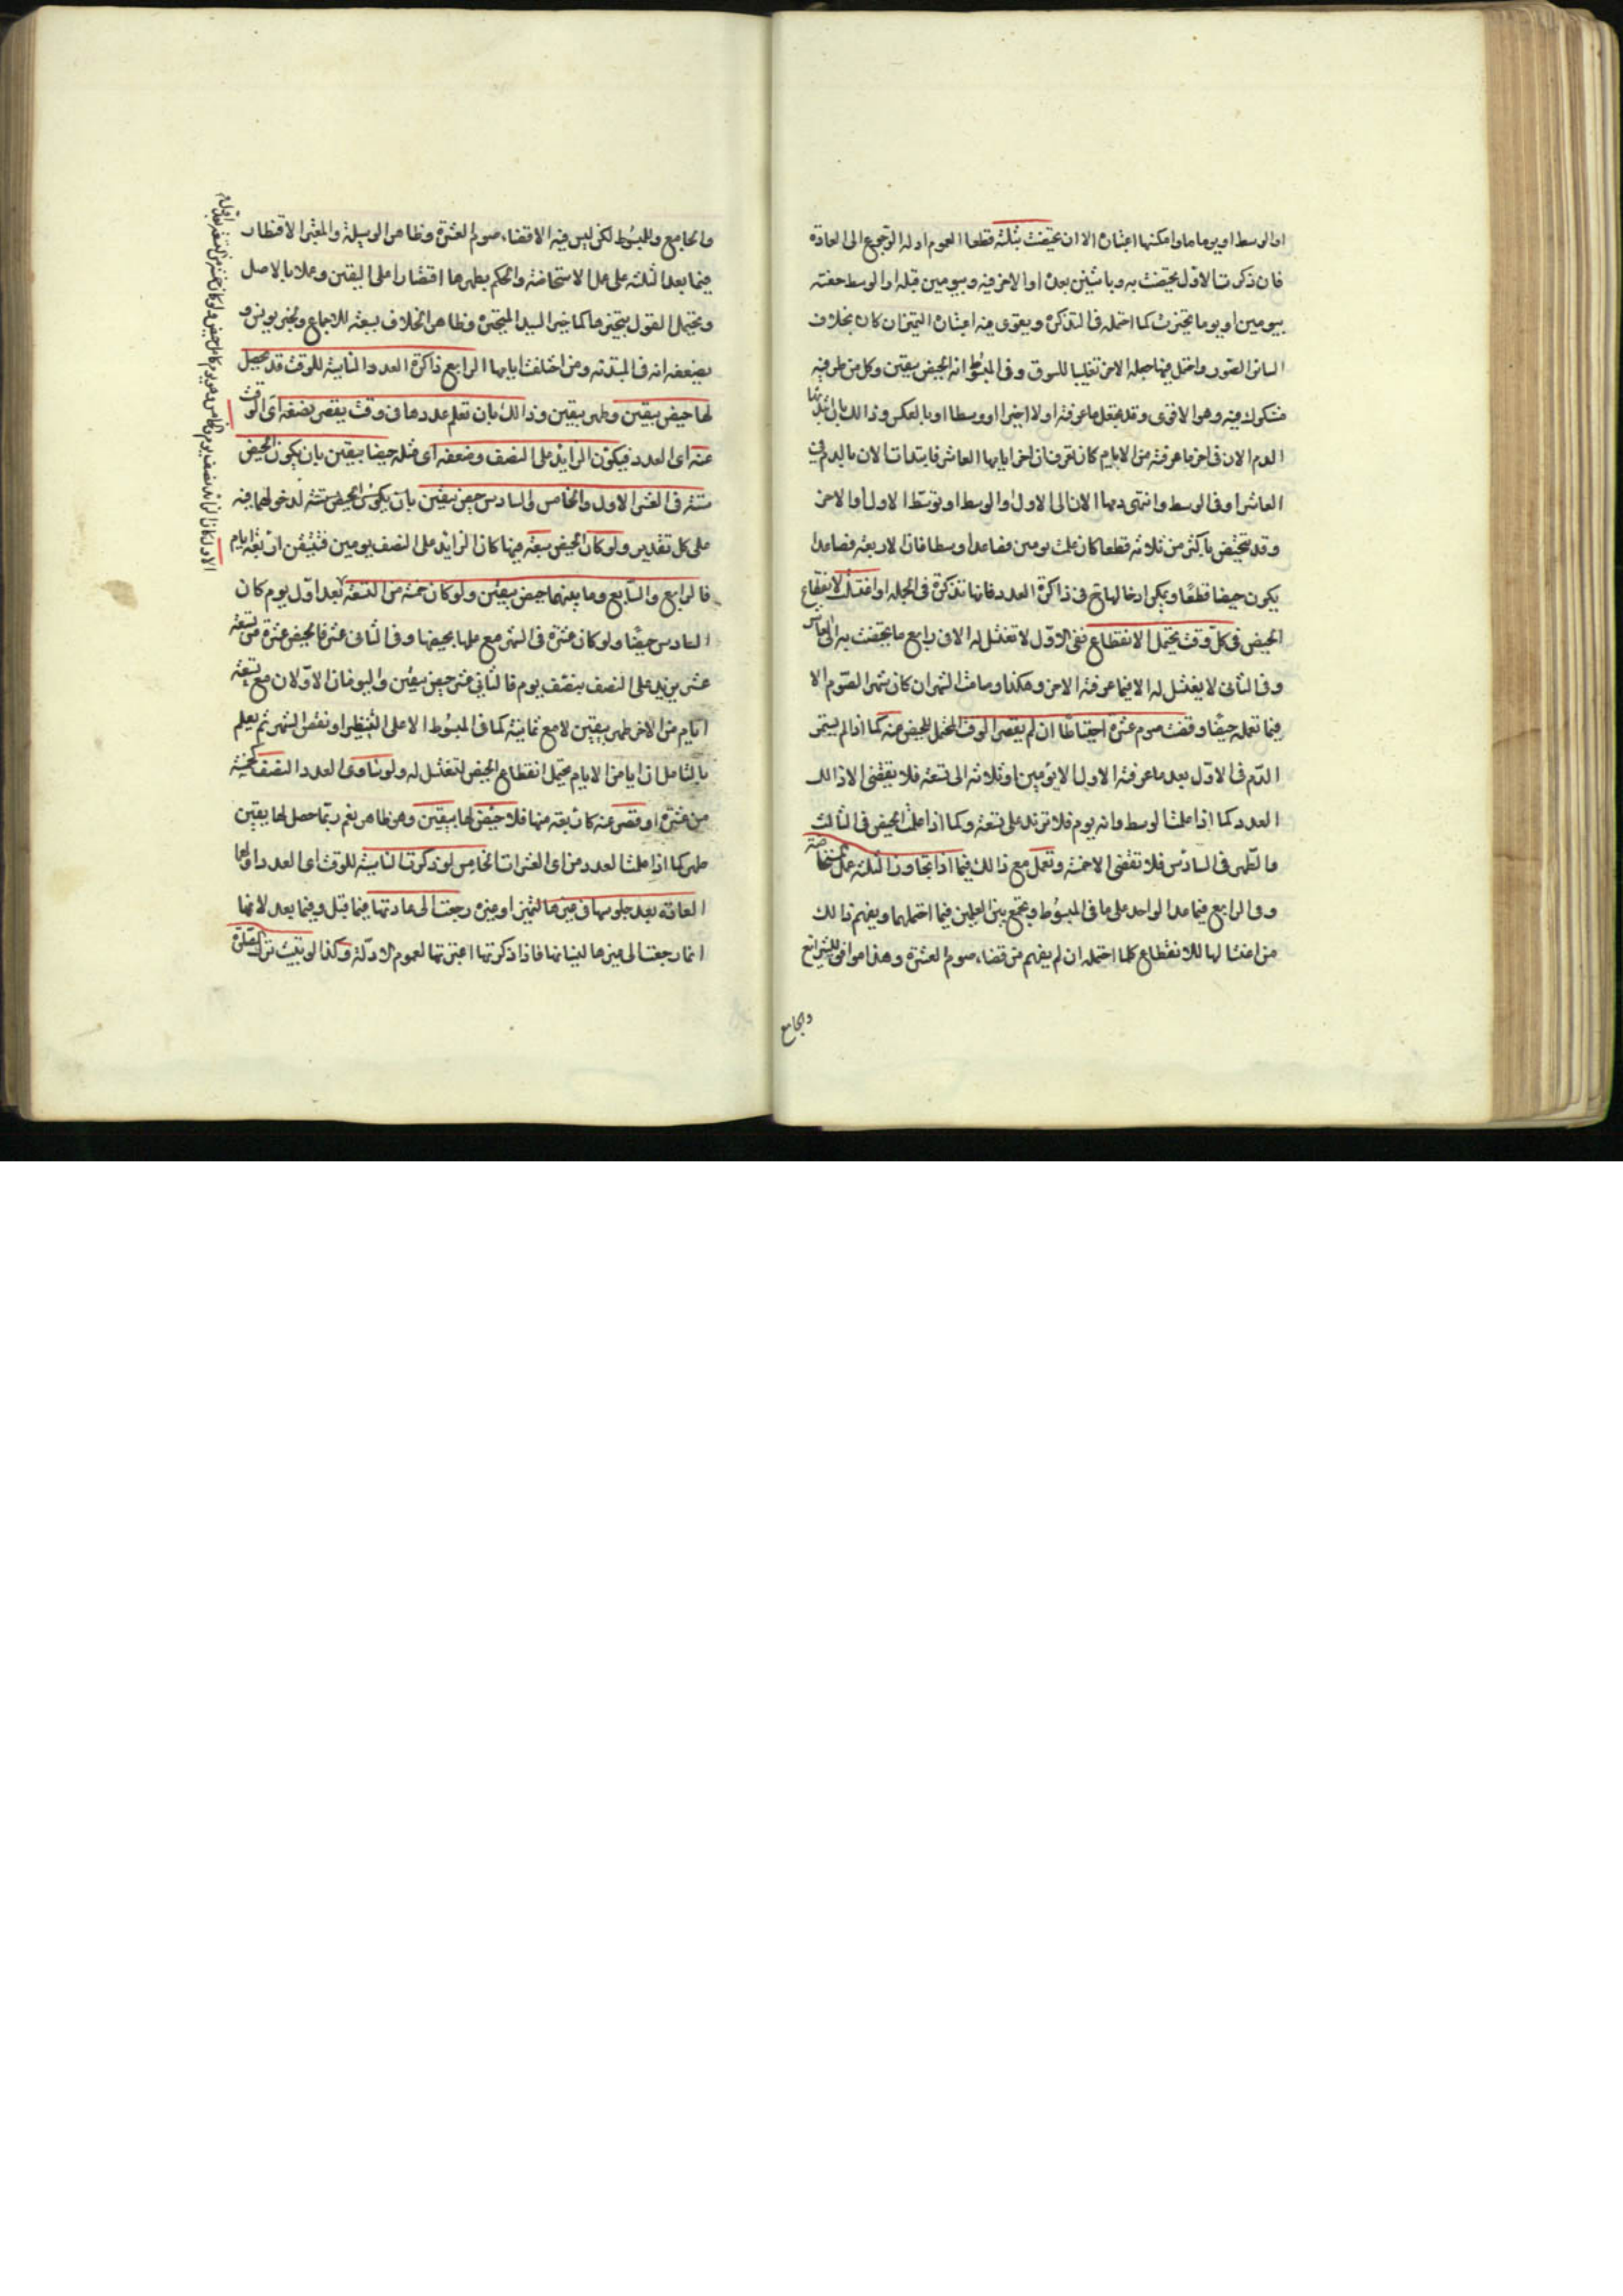 او الوسط او يوما ما وامكنها اعتباره الا ان تحيضت بثلثة قطعا لعموم ادلة الرجوع الى العادة
فان ذكرت الاول تحيضت به وباثنين بعده او الاخر فيه وبيومين قبله او الوسط حفته
بيومين او يوما تحيزت كما احتمله في التذكرة ويقوى فيه اعتباره التميز ان كان بخلاف
السائر الصور واحتمل فيها جعله الاخر تغليبا للسوق وفي المبسوط انه الحيض بيقين وكل من طرفيه
مشكوك فيه وهو الاقوى وقد يجعل ما عرفته اولا اخيرا او وسطا او بالعكس وذالك بان ابتدئها
الدم الان في اخر ما عرفته من الايام كان تعرف ان اخر ايامها العاشر فابتدات الان بالدم في
العاشر او في الوسط وانتهى دمها الان الى الاول والوسط او توسط الاول او الاخر
وقد تتحيض باكثر من ثلاثة قطعا كان علمت يومين فصاعدا وسطا فان الاربعة فصاعدا
يكون حيضا قطعا ويمكن ادخالها في ذاكرة العدد فانها تذكرة في الجملة او اغتسلت لانقطاع
الحيض في كل وقت يحتمل الانقطاع ففي الاول لا تغتسل له الا في رابع ما تحيضت به الى العاشر
وفي الثاني لا يغتسل له الا فيما عرفته الاخر وهكذا وصامت الشهر ان كان شهر الصوم الا
فيما تعلمه حيضا وقضت صوم عشرة احتياطا ان لم يقصر الوقت المحتمل للحيض عنه كما اذا لم يستمر
الدم في الاول بعد ما عرفته الاول الا يومين او ثلاثة الى تسعة فلا يقضى الا ذالك
العدد كما اذا علمت الوسط وانه يوم فلا تزيد على تسعة وكما اذا علمت الحيض في الثالث
والطهر في السادس فلا تقضى الا خمسة وتعمل مع ذالك فيما اذا تجاوز الثلثة عمل المستحاضة
وفي الرابع فيما عدا الواحد على ما في المبسوط وتجمع بين العملين فيما احتملهما ويفهم ذالك
من اغتسالها للانقطاع كلما احتمله ان لم يفهم من قضاء صوم العشرة وهذا موافق للشرائع
والجامع
والجامع والمبسوط لكن ليس فيه الا قضاء صوم العشرة وظاهر الوسيلة والمعتبر الاقتصار
فيما بعد الثلثة على عمل الاستحاضة والحكم بطهرها اقتصارا على اليقين وعملا بالاصل
ويحتمل القول بتحيزها كما خير السيد المتحيرة وظاهر الخلاف سبعة للاجماع وخبر يونس و
يضعفه انه في المبتدئة ومن اختلفت ايامها الرابع ذاكرة العدد الناسية للوقت قد يحصل
لها حيض بيقين وطهر بيقين وذالك بان تعلم عددها في وقت يقصر نصفه اي الوقت
عنه اي العدد فيكون الزايد على النصف وضعفه اي مثله حيضا بيقين بان يكون الحيض
ستة في العشر الاول والخامس والسادس حيض بيقين بان يكون الحيض ستة لدخولهما فيه
على كل تقدير ولو كان الحيض سبعة فيها كان الزايد على النصف يومين فتيقن اربعة ايام
فالرابع والسابع وما بينهما حيض بيقين ولو كان خمسة من التسعة بعد اول يوم كان
السادس حيضا ولو كان عشرة في الشهر مع علمها بحيضها في الثاني عشر فالحيض عشرة من تسعة
عشر يزيد على النصف بنصف يوم فالثاني عشر حيض بيقين واليومان الاولان مع تسعة
ايام من الاخر طهر بيقين لا مع ثمانية كما في المبسوط الا على التنظير او نقص الشهر ثم يعلم
بالتامل ان ايا من الايام يحتمل انقطاع الحيض لتغتسل له ولو تساوى العدد النصف كخمسة
من عشرة او قصر عنه كاربعة منها فلا حيض لها بيقين وهو ظاهر نعم ربما حصل لها يقين
طهر كما اذا علمت العدد من اي العشرات الخامس لو ذكرت الناسية للوقت اي العدد او لهما
العادة بعد جلوسها في غيرها لتميز او غيره رجعت الى عادتها فيما قبل وفيما بعد لانها
انما رجعت الى غيرها لنسيانها فاذا ذكرتها اعتبرتها لعموم الادلة وكذا لو تبينت ترك الصلوة